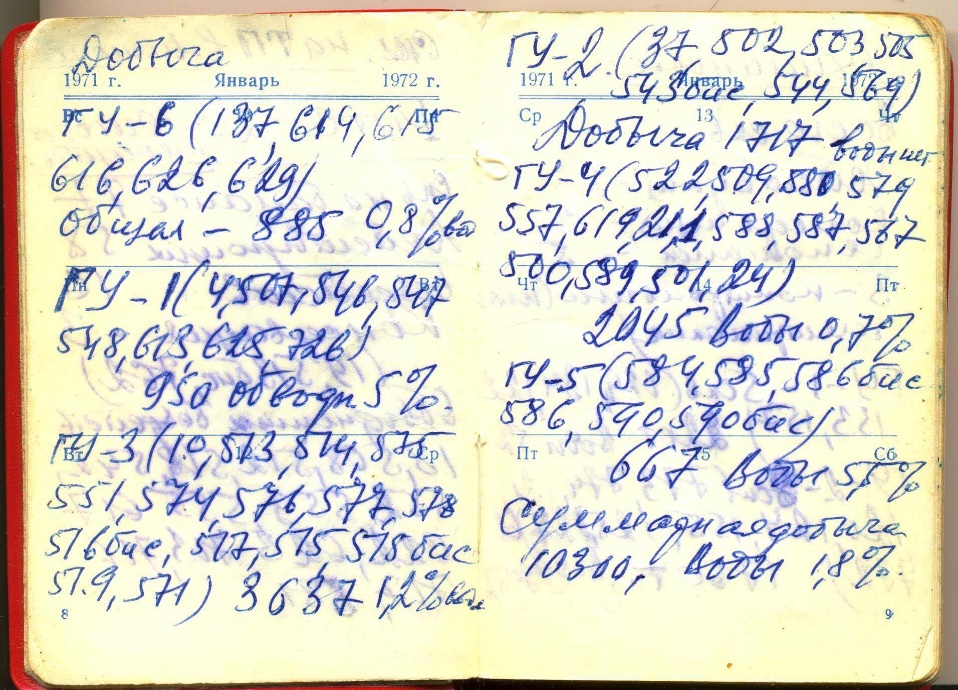 Добыча
1971 г. Январь 1972 г.
Вс Пн
ГУ-6 (137, 614, 615
616, 626, 629)
общая – 885 0,8% вод
Пн Вт
ГУ-1 (4, 507, 546, 547
548, 613, 625, 726)
950 обводн 5%.
Вт 12 Ср
ГУ-3 (10, 513, 514, 575
551, 574, 576, 577, 578
516 бис, 517, 515, 515 бис
519, 571) 3637 1,2% вода
8
ГУ-2 (37 502, 503 505
1971 г. Январь 1972 г.
543 бис, 544, 569)
Ср 13 Чт
Добыча 1717 воды нет
ГУ-4 (522, 509, 580, 579
557, 619, 211, 588, 587, 567
Чт 14 Пт
500, 589, 501, 24)
2045 Воды 0,7%
ГУ-5 (584, 585, 586 бис
586, 590, 590 бис)
Пт 15 Сб
667 Воды 5,5%
Суммарная добыча
10300, Воды 1,8%.
9